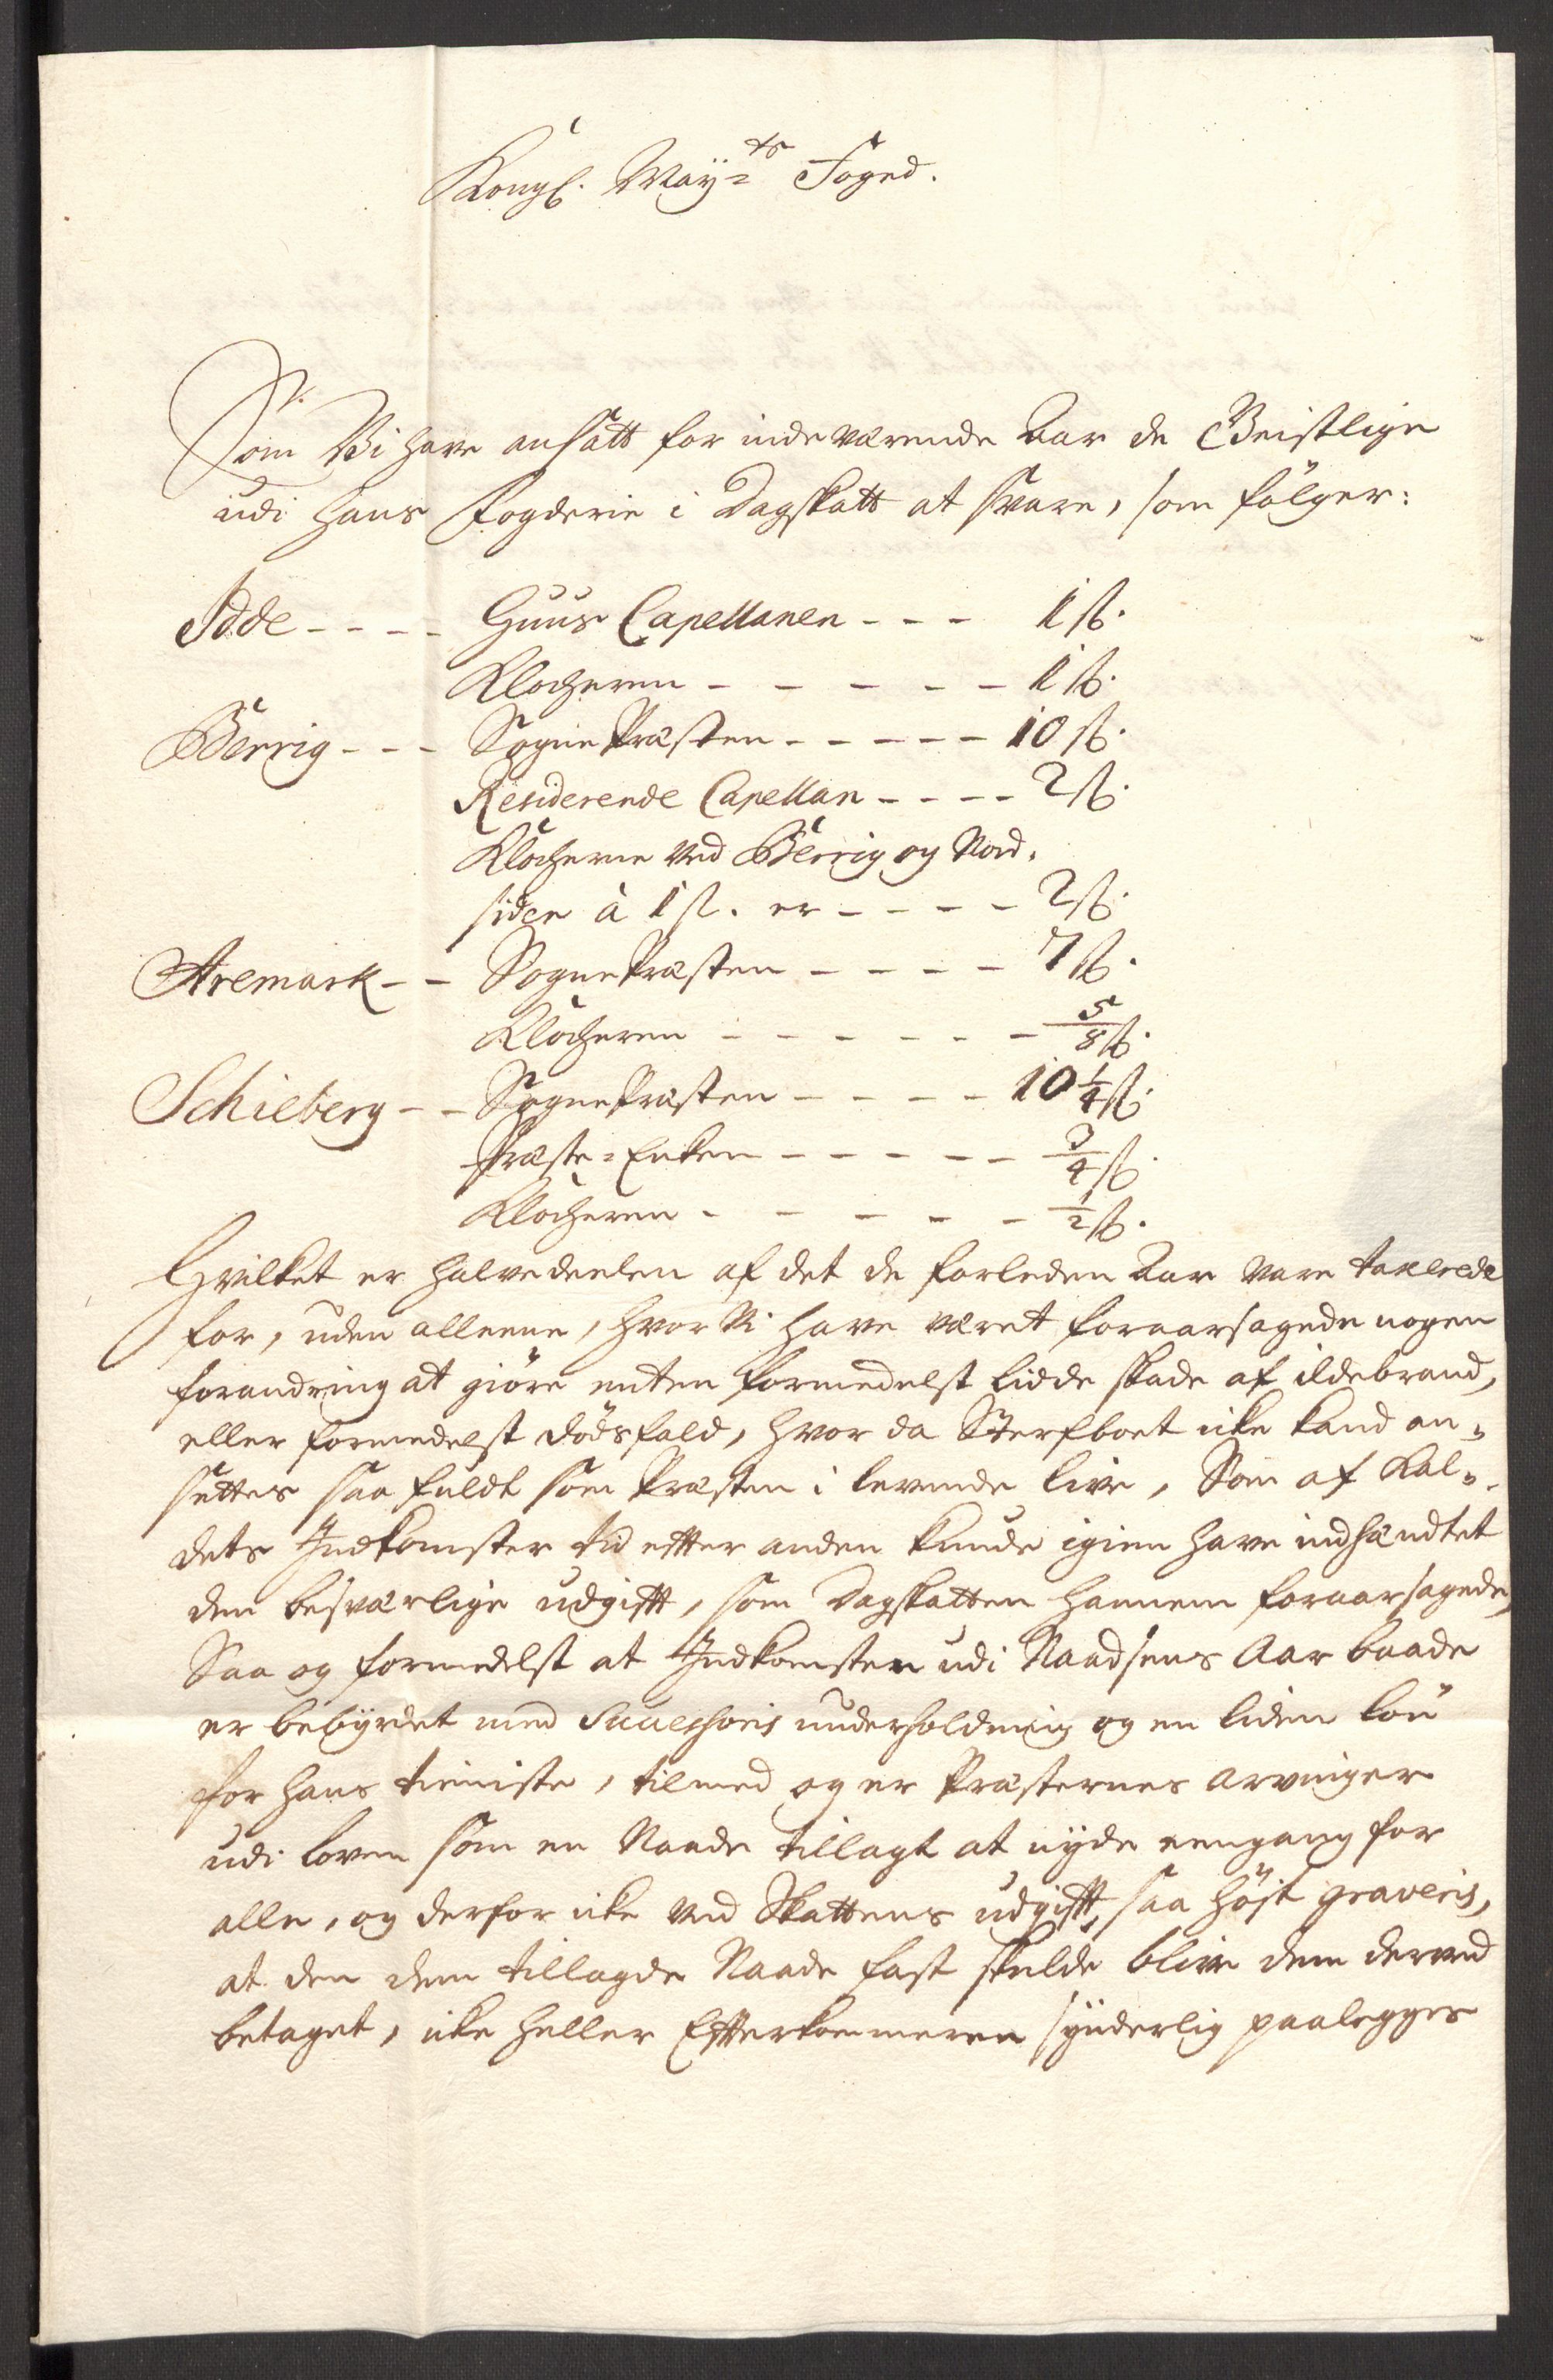 Kongl. May:ts Foged.
Som Vi have ansatt for indeværende Aar de Geistlige
udi hans Fogderie i Dagskatt at svare, som fölger:
Idde - - - - Huus Capellanen - - - 1 ß.
Klocheren - - - - - 1 ß.
Berrig - - - SognePræsten - - - - - 10 ß.
Residerende Capellan - - - - 2 ß.
Klocherne ved Berrig og Nord-
siden à 1 ß. er - - - - 2 ß.
Aremark - - SognePræsten - - - - 7 ß.
Klocheren - - - - - - 5/8 ß.
Schieberg - - SognePræsten - - - - 10 1/4 ß.
Præste-Enken - - - - - 3/4 ß.
Klocheren - - - - - 1/2 ß.
Hvilket er halvedeelen af det de forleden Aar vare taxerede
for, uden alleene, hvor Vi have været foraarsagede nogen
forandring at giöre enten formedelst lidde skade af ildebrand,
eller formedelst dödsfald, hvor da Sterfboet icke kand an-
settes saa fuldt som Præsten i levende live, Som af Kal-
dets Indkomster tid efter anden kunde igien have indhændtet
den besværlige udgifft, som Dagskatten hannem foraarsagede,
Saa og formedelst at Indkomsten udi Naadsens Aar baade
er bebyrdet med Successoris underholdning og en liden lön
for hans tieniste, tilmed og er Præsternes Arvinger
udi loven som en Naade tillagt at nyde eengang for
alle, og derfor icke ved Skattens udgifft, saa höjt graveris,
at den dem tillagde Naade fast skulde blive dem derved
betaget, icke heller Efterkommeren synderlig paalegges